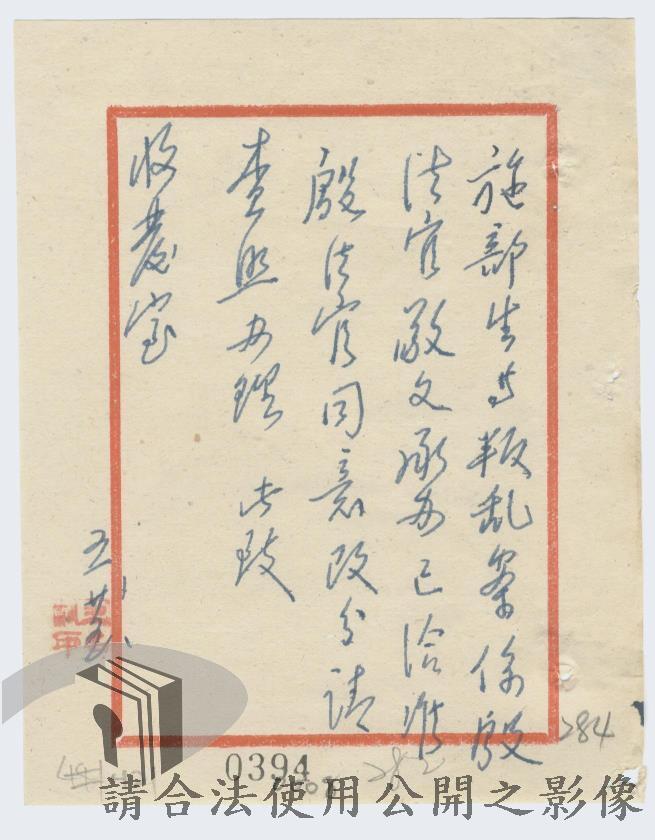 施部生等叛乱案係殷
法官敬文承办已洽准
殷法官同意改分請
查照办理 此致
收發室
0394
284
282
請合法使用公開之影像